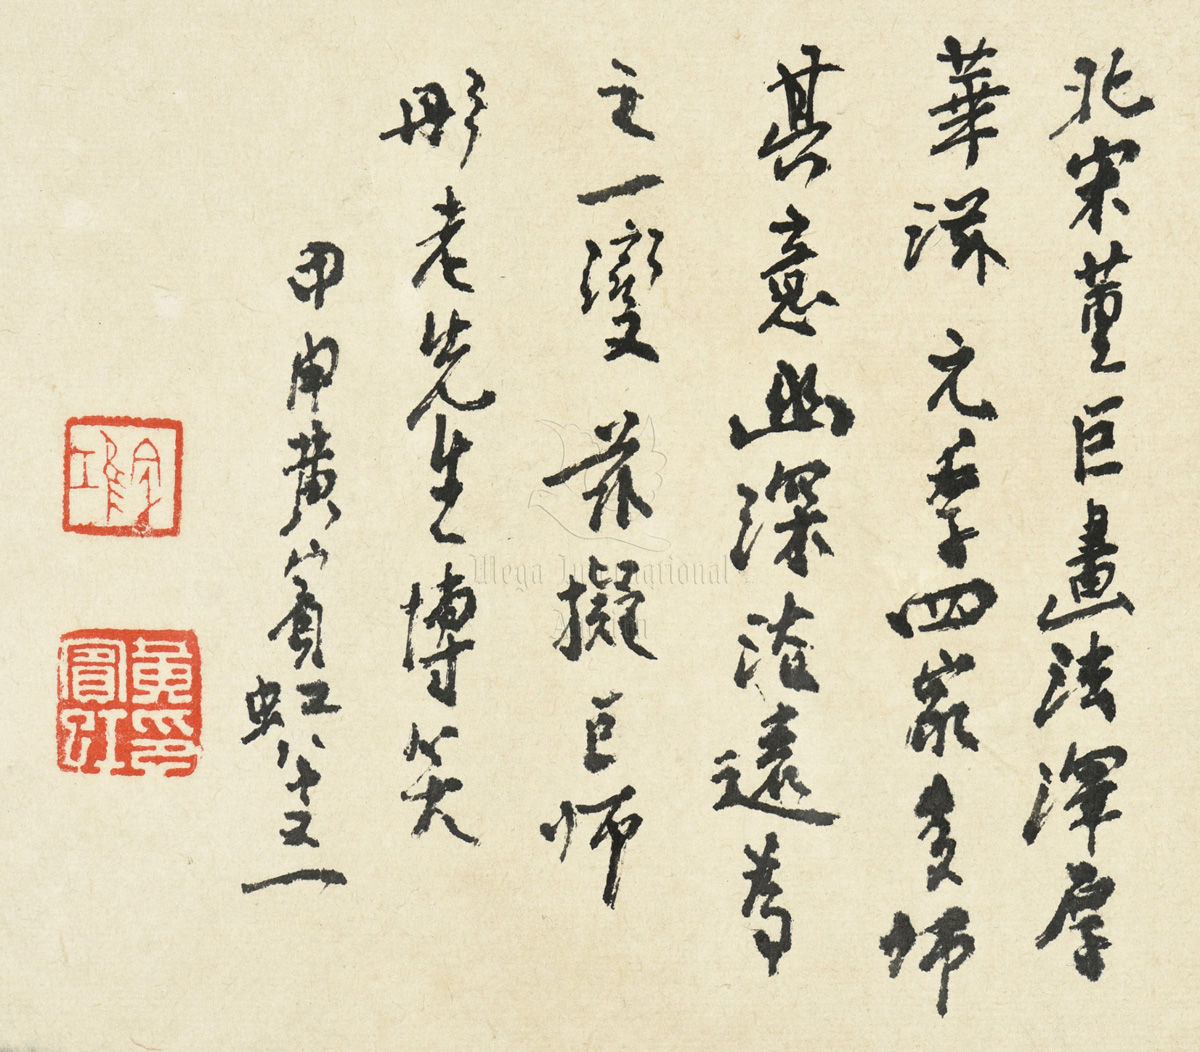 北宋董巨畫法渾厚
華滋元季四家多師
其意幽深澹遠為
之一變茲擬巨師
彤老先生博笑
甲申黃賓虹八十又一
黃印賓虹
Mega International
Auction